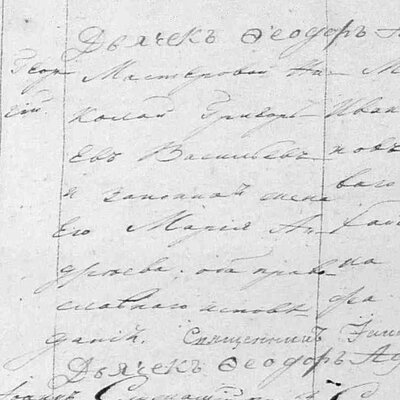 Дьячекъ Ѳеодоръ
Геор Мастеровой Ни М
гій колай Григорь Иван
евъ Васильевъ новъ
и законная жена ваго
Его Марія Ан
дреева. оба право на
славнаго испове
данія. Священникъ
Дьячекъ Ѳеодоръ